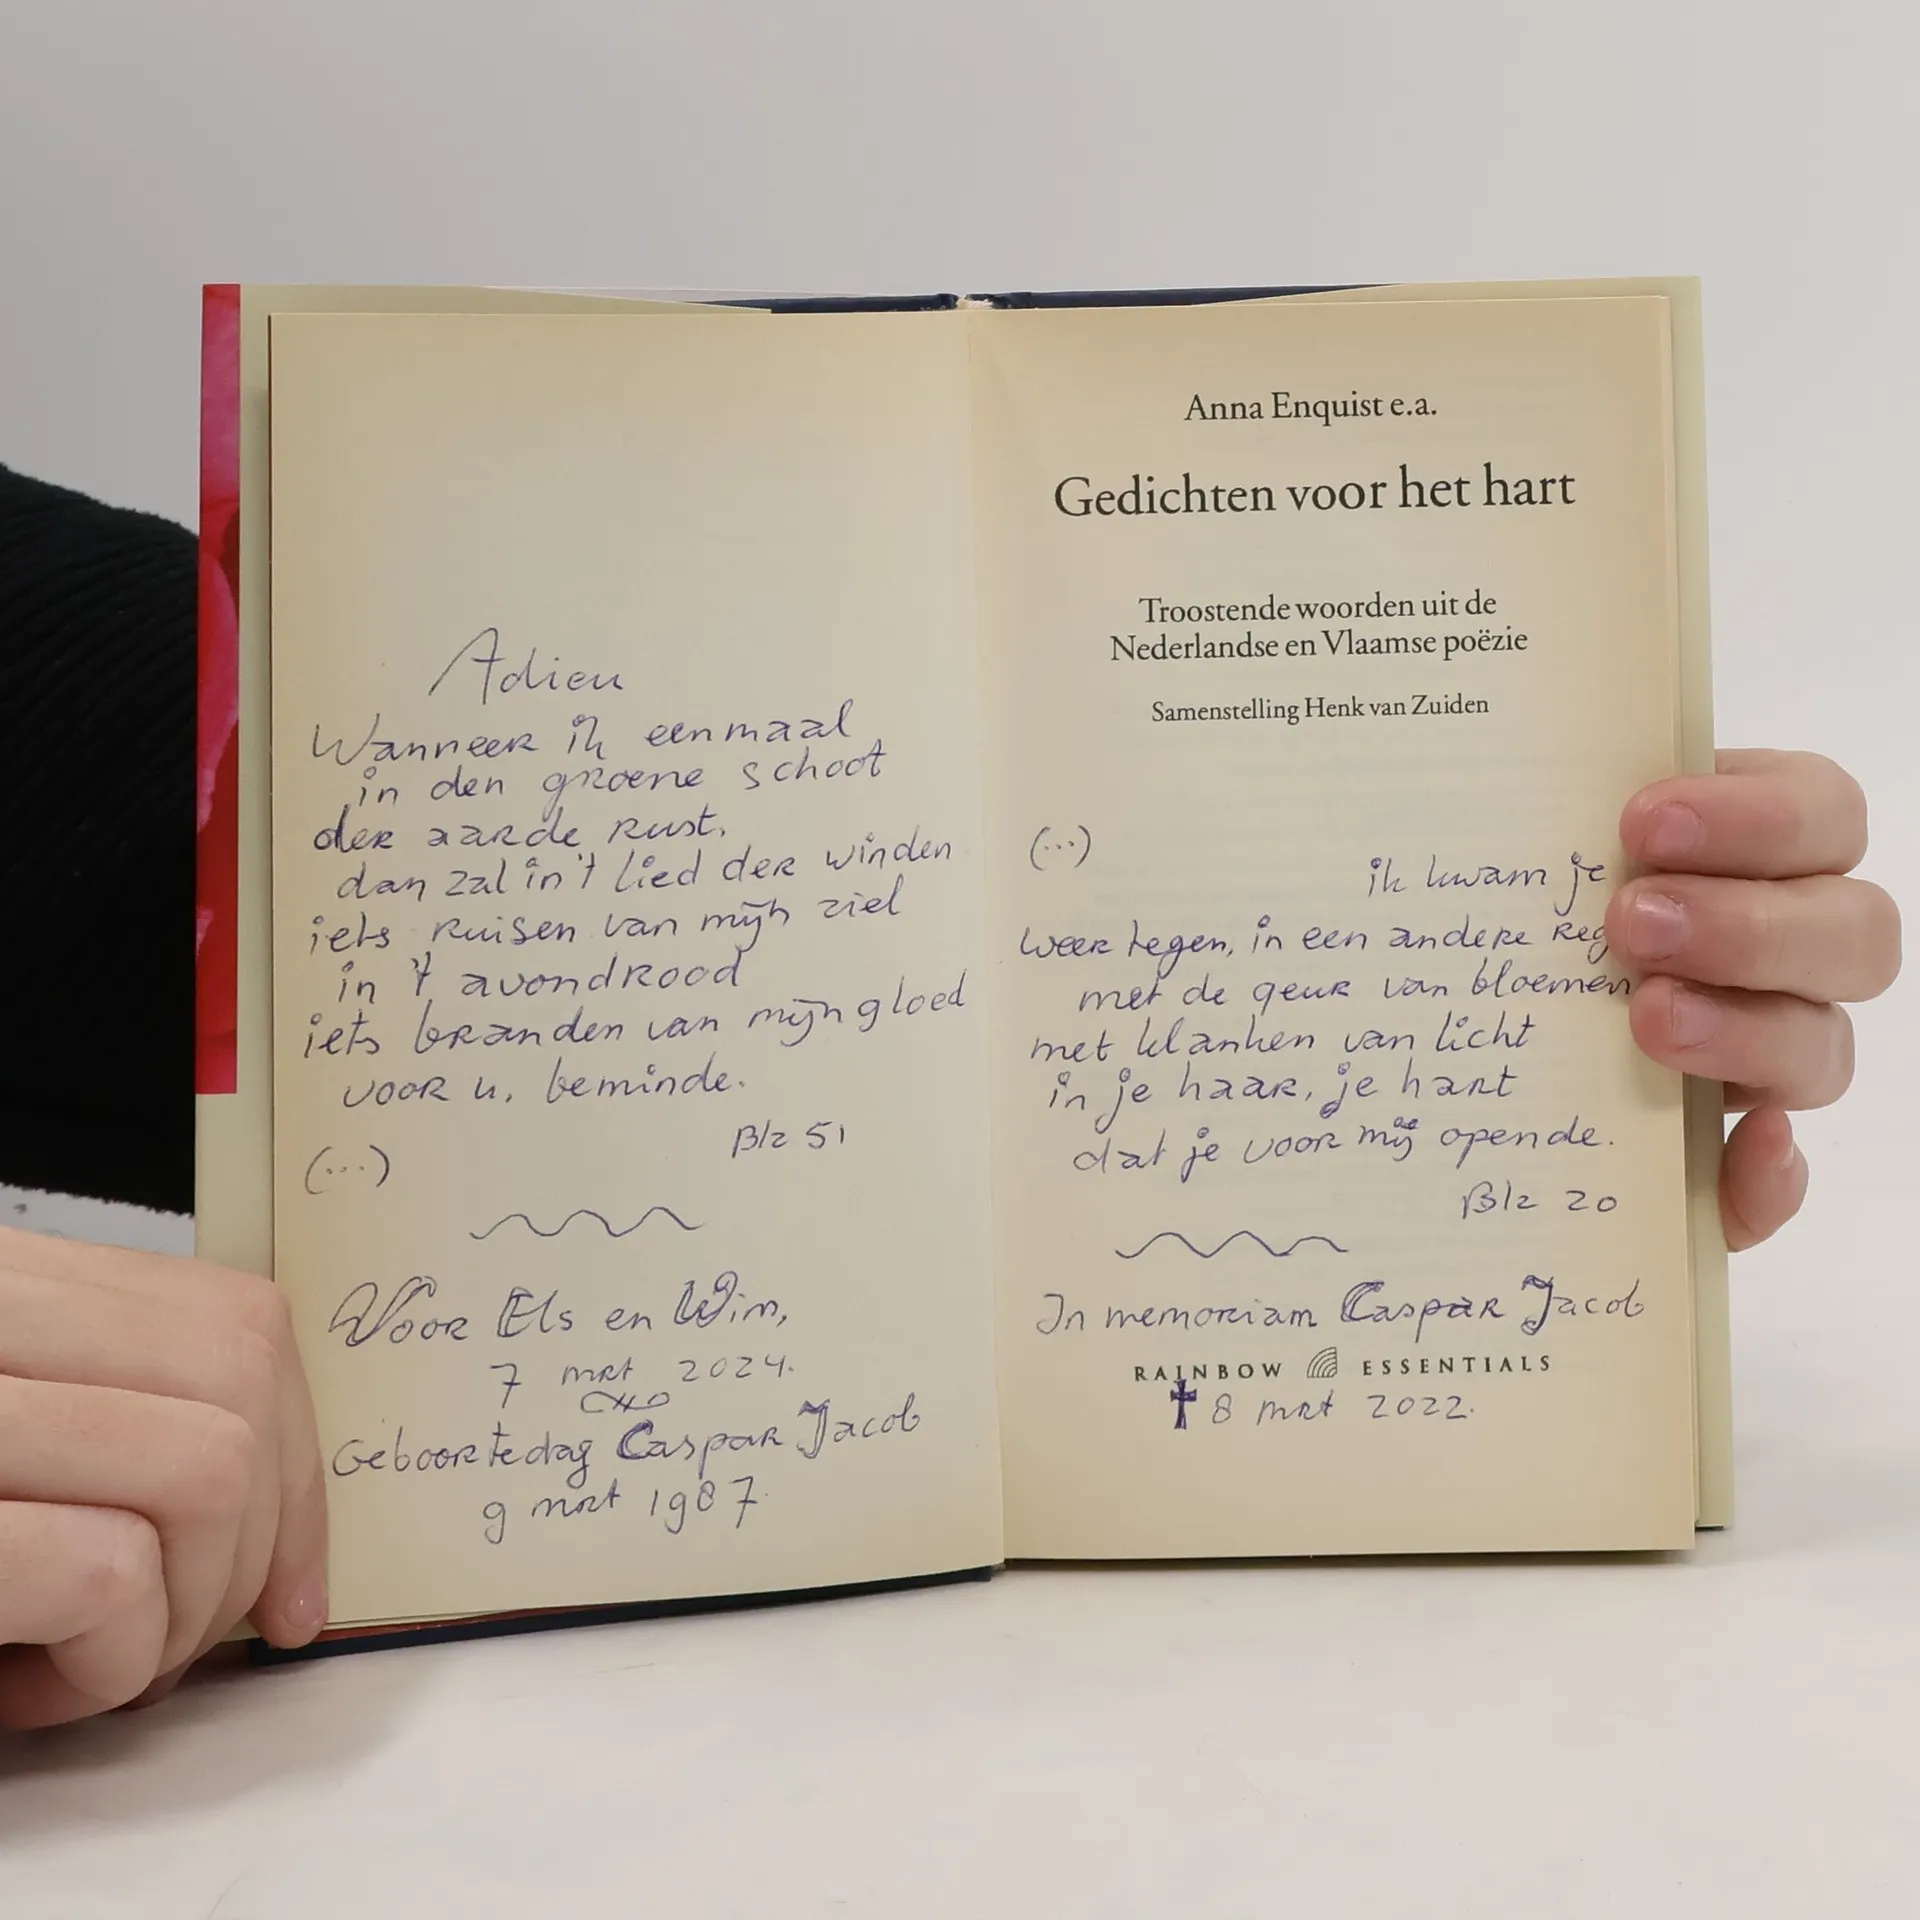 Adieu
Wanneer ik eenmaal
in den groene schoot
der aarde rust,
dan zal in 't lied der winden
iets ruisen van mijn ziel
in 't avondrood
iets branden van mijn gloed
voor u, beminde.
Blz 51
(...)
Voor Els en Wim,
7 mrt 2024.
Geboortedag Caspar Jacob
9 mrt 1987.
Anna Enquist e.a.
Gedichten voor het hart
Troostende woorden uit de
Nederlandse en Vlaamse poëzie
Samenstelling Henk van Zuiden
(...)
ik kwam je
weer tegen, in een andere
met de geur van bloemen
met klanken van licht
in je haar, je hart
dat je voor mij opende.
Blz 20
In memoriam Caspar Jacob
RAINBOW ESSENTIALS
✝ 8 mrt 2022.